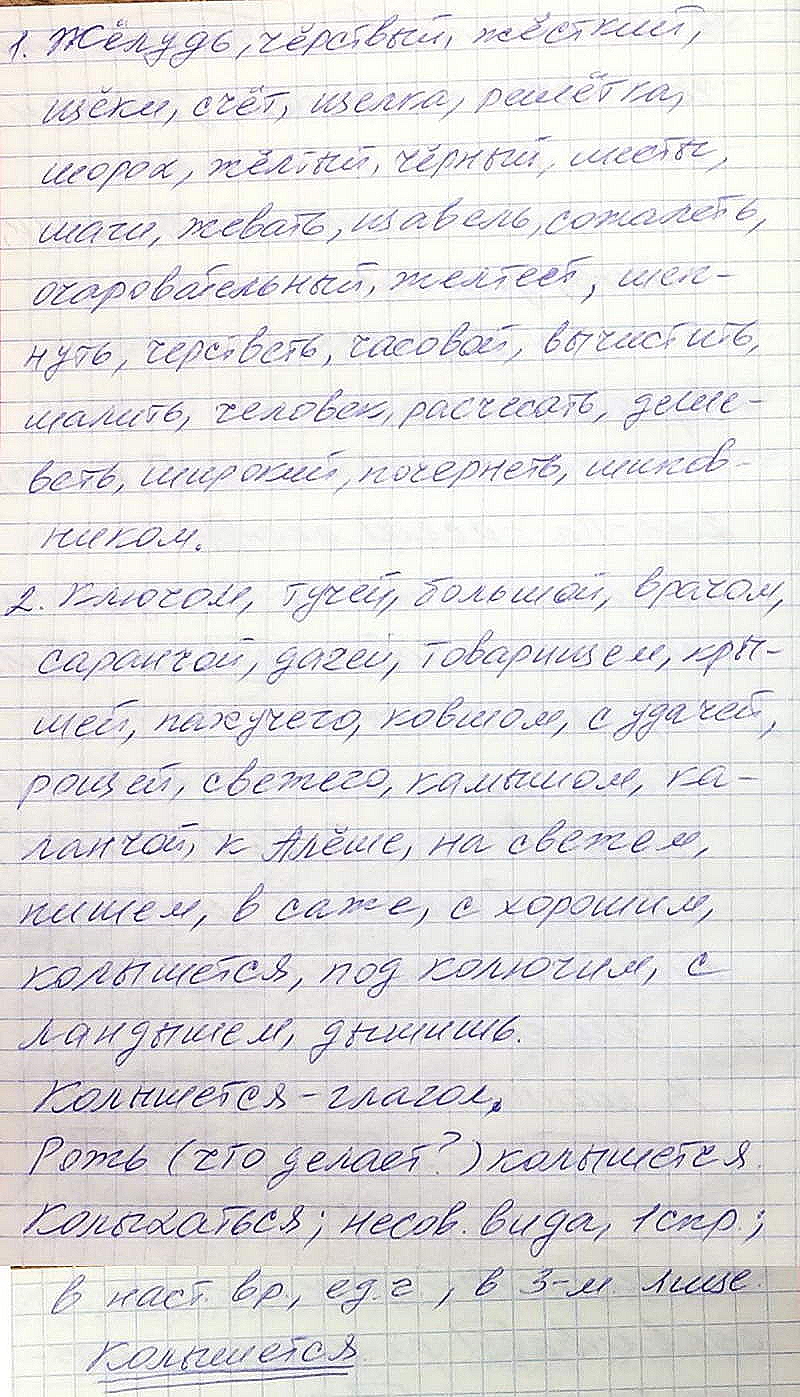 1. Жёлудь, чёрствый, жёсткий,
щёки, счёт, щелка, решётка,
шорох, жёлтый, чёрный, шесты,
шаги, жевать, щавель, сожалеть,
очаровательный, желтеет, шеп-
нуть, черстветь, часовой, вычистить,
шалить, человек, расчесать, деше-
веть, широкий, почернеть, шипов-
ником.
2. Ключом, тучей, большой, врачом,
саранчой, дачей, товарищем, кры-
шей, пахучего, ковшом, с удачей,
рощей, свежего, камышом, ка-
ланчой, к Алёше, на свежем,
пишем, в саже, с хорошим,
колышется, под колючим, с
ландышем, дышишь.
Колышется - глагол.
Рожь (что делает?) колышется.
Колыхаться; несов. вида, 1 спр.;
в наст. вр., ед.ч., в 3-м лице.
Колышется